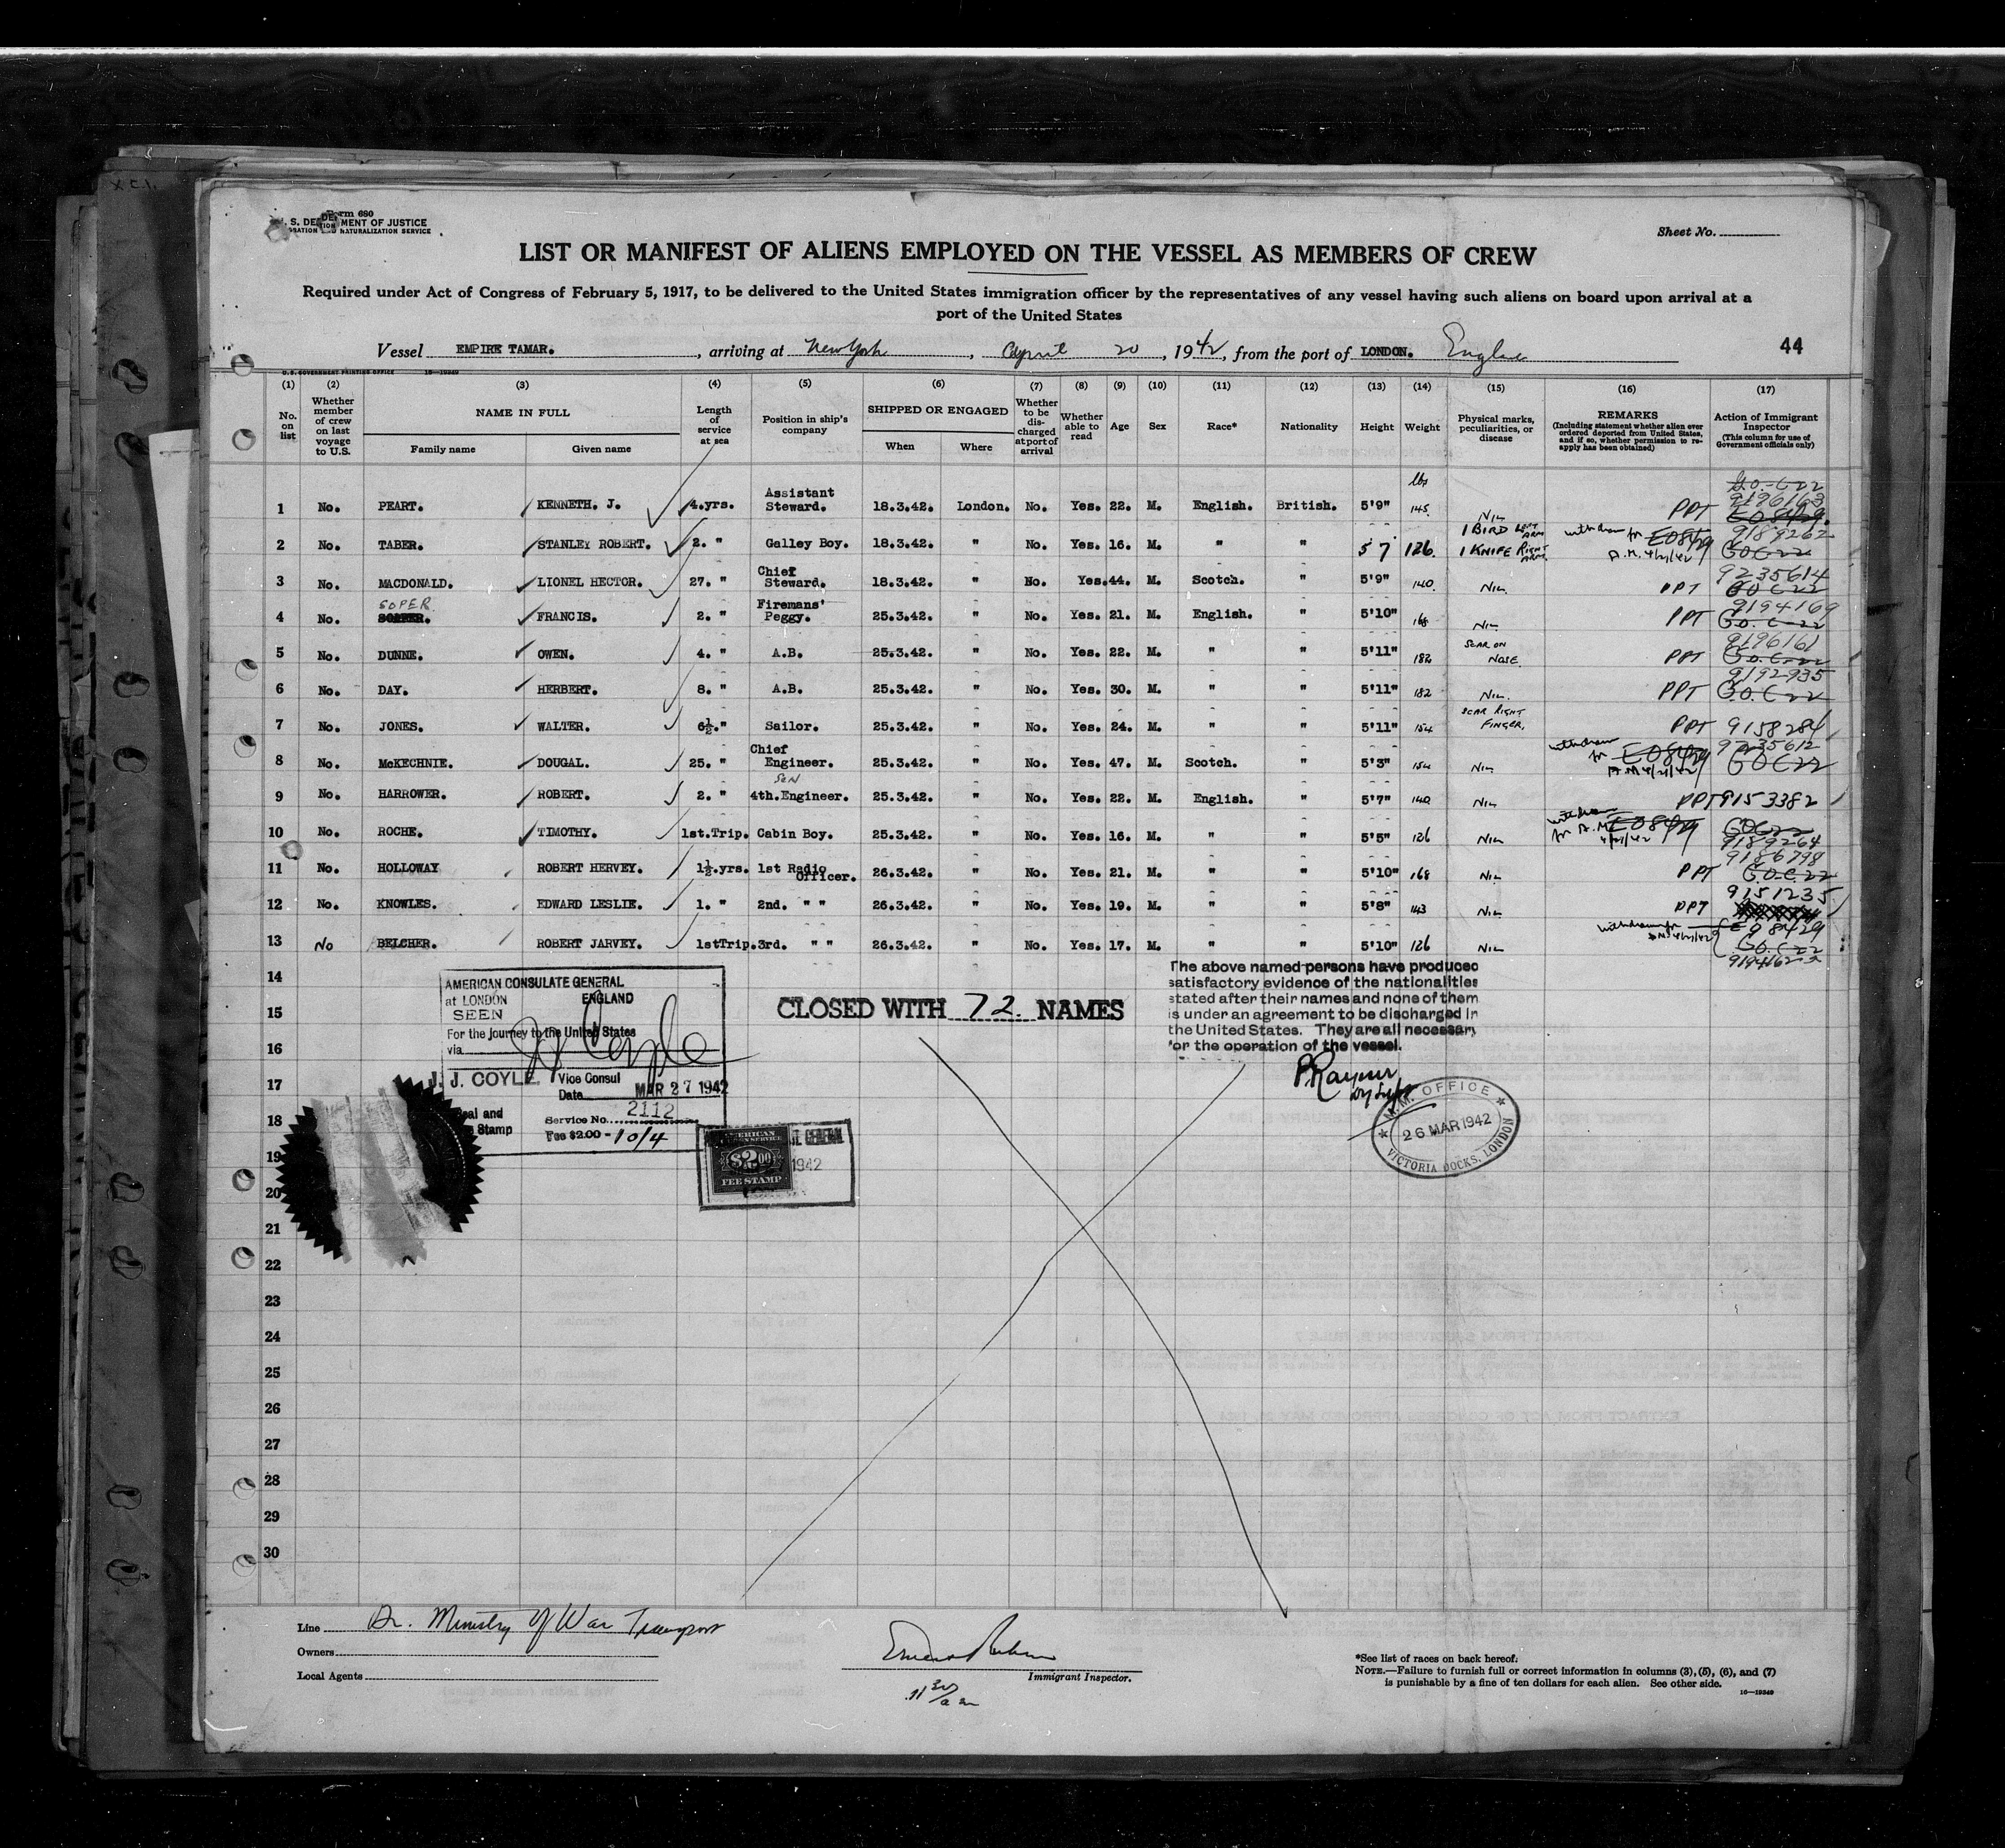 Form 680
U. S. DEPARTMENT OF JUSTICE
IMMIGRATION AND NATURALIZATION SERVICE
Sheet No.
LIST OR MANIFEST OF ALIENS EMPLOYED ON THE VESSEL AS MEMBERS OF CREW
Required under Act of Congress of February 5, 1917, to be delivered to the United States immigration officer by the representatives of any vessel having such aliens on board upon arrival at a
port of the United States
Vessel EMPIRE TAMAR. , arriving at New York , April 20 , 1942, from the port of LONDON. England
44
U.S. GOVERNMENT PRINTING OFFICE 16—19349
(1) (2) (3) (4) (5) (6) (7) (8) (9) (10) (11) (12) (13) (14) (15) (16) (17)
No. on list
Whether member of crew on last voyage to U.S.
NAME IN FULL
Family name Given name
Length of service at sea
Position in ship's company
SHIPPED OR ENGAGED
When Where
Whether to be discharged at port of arrival
Whether able to read
Age
Sex
Race*
Nationality
Height
Weight
Physical marks, peculiarities, or disease
REMARKS
(Including statement whether alien ever ordered deported from United States, and if so, whether permission to reapply has been obtained)
Action of Immigrant Inspector
(This column for use of Government officials only)
lbs
1 No. PEART. KENNETH. J. 4.yrs. Assistant Steward. 18.3.42. London. No. Yes. 22. M. English. British. 5'9" 145. NIL PPT G.O.C-22 9196163 E08429.
2 No. TABER. STANLEY ROBERT. 2. " Galley Boy. 18.3.42. " No. Yes. 16. M. " " 5 7 126. 1 BIRD LEFT ARM 1 KNIFE RIGHT ARM. withdrawn for E08429 A.M. 4/21/42 9189262 GOC-22
3 No. MACDONALD. LIONEL HECTOR. 27. " Chief Steward. 18.3.42. " No Yes. 44. M. Scotch. " 5'9" 140. NIL. PPT 9235614 GO C-22
4 No. SOPER FRANCIS. 2. " Firemans' Peggy. 25.3.42. " No. Yes. 21. M. English. " 5'10" 168 NIL PPT 9194169 G.O. C-22
5 No. DUNNE. OWEN. 4. " A.B. 25.3.42. " No. Yes. 22. M. " " 5'11" 182 SCAR ON NOSE. PPT 9196161 G.O.C-22
6 No. DAY. HERBERT. 8. " A.B. 25.3.42. " No. Yes. 30. M. " " 5'11" 182 NIL. PPT 9192935 G.O.C-22
7 No. JONES. WALTER. 6½." Sailor. 25.3.42. " No. Yes. 24. M. " " 5'11" 154 SCAR RIGHT FINGER. PPT 9158284
8 No. McKECHNIE. DOUGAL. 25. " Chief Engineer. 25.3.42. " No. Yes. 47. M. Scotch. " 5'3" 154 NIL withdrawn for E08429 A.M 4/21/42 9235612 GOC22
9 No. HARROWER. ROBERT. 2. " SEN 4th.Engineer. 25.3.42. " No. Yes. 22. M. English. " 5'7" 140 NIL PPT 9153382
10 No. ROCHE. TIMOTHY. 1st.Trip. Cabin Boy. 25.3.42. " No. Yes. 16. M. " " 5'5" 126 NIL withdrawn for A.M E08429 4/21/42 GOC22 9189264
11 No. HOLLOWAY ROBERT HERVEY. 1½.yrs. 1st Radio Officer. 26.3.42. " No. Yes. 21. M. " " 5'10" 168 NIL PPT 9186798 G.O.C.22
12 No. KNOWLES. EDWARD LESLIE. 1. " 2nd. " " 26.3.42. " No. Yes. 19. M. " " 5'8" 143 NIL PPT 9151235
13 No BELCHER. ROBERT JARVEY. 1stTrip. 3rd. " " 26.3.42. " No. Yes. 17. M. " " 5'10" 126 NIL withdrawn for A.M. 4/21/42 E08429 GO.C-22
14
15
16
17
18
19
20
21
22
23
24
25
26
27
28
29
30
AMERICAN CONSULATE GENERAL
at LONDON ENGLAND
SEEN
For the journey to the United States
via
J. J. COYLE. Vice Consul
Date MAR 27 1942
Seal and
Fee Stamp
Service No. 2112
Fee $2.00 - 10/4
AMERICAN
$2.00
FEE STAMP
GENERAL
1942
CLOSED WITH 72. NAMES
The above named persons have produced
satisfactory evidence of the nationalities
stated after their names and none of them
is under an agreement to be discharged in
the United States. They are all necessary
for the operation of the vessel.
P Rayner
M.M. OFFICE
26 MAR 1942
VICTORIA DOCKS, LONDON
Line Br. Ministry of War Transport
Owners
Local Agents
Immigrant Inspector.
11 30/a m
*See list of races on back hereof.
NOTE.—Failure to furnish full or correct information in columns (3), (5), (6), and (7)
is punishable by a fine of ten dollars for each alien. See other side.
16—19349